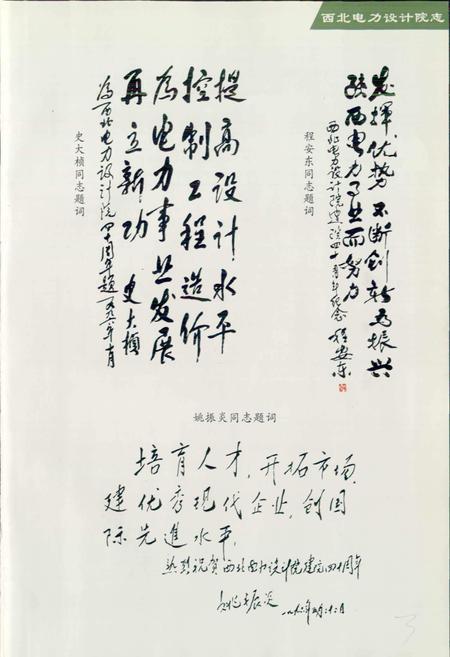 西北电力设计院志
发挥优势 不断创新 为振兴
陕西电力事业而努力
西北电力设计院建院四十周年纪念 程安东
程安东同志题词
提高设计水平
控制工程造价
为电力事业发展
再立新功 史大桢
为西北电力设计院四十周年题 一九九六年十月
史大桢同志题词
姚振炎同志题词
培育人才,开拓市场,
建优秀现代企业,创国
际先進水平。
热烈祝贺西北电力设计院建立四十周年
姚振炎